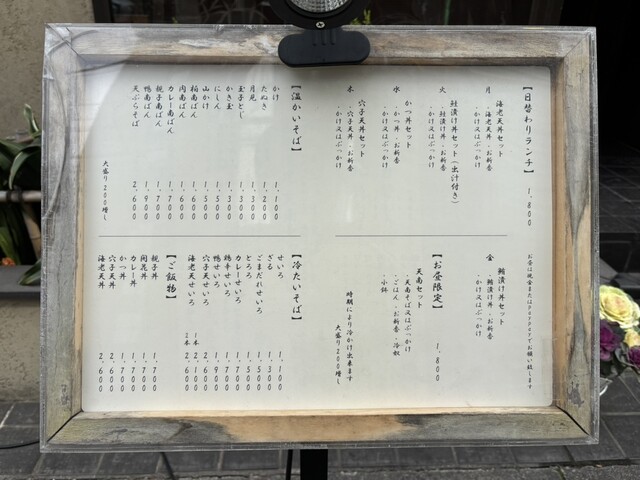 【日替わりランチ】 1,800
お昼は現金またはPayPayでお願い致します
月 海老天丼セット
・海老天丼・お新香
・かけ又はぶっかけ
火 鮭漬け丼セット(出汁付き)
・鮭漬け丼・お新香
・かけ又はぶっかけ
水 かつ丼セット
・かつ丼・お新香
・かけ又はぶっかけ
木 穴子天丼セット
・穴子天丼・お新香
・かけ又はぶっかけ
金 鮪漬け丼セット
・鮪漬け丼・お新香
・かけ又はぶっかけ
【お昼限定】
天南セット 1,800
・天南そば又はぶっかけ
・ごはん・お新香・冷奴
・小鉢
時期により冷かけ出来ます
大盛り200増し
【温かいそば】
かけ 1,100
たぬき 1,200
月見 1,300
玉子とじ 1,300
かき玉 1,300
にしん 1,500
山かけ 1,500
肉南ばん 1,600
カレー南ばん 1,600
親子南ばん 1,700
鴨南ばん 1,900
天ぷらそば 2,600
大盛り200増し
【冷たいそば】
せいろ 1,100
ざる 1,300
ごまだれせいろ 1,500
とろろ 1,500
カレーせいろ 1,700
鶏辛せいろ 1,700
鴨せいろ 1,900
穴子天せいろ 2,600
海老天せいろ 1本 2,000
2本 2,600
【ご飯物】
親子丼 1,700
開花丼 1,700
カレー丼 1,700
かつ丼 1,700
穴子天丼 2,600
海老天丼 2,600